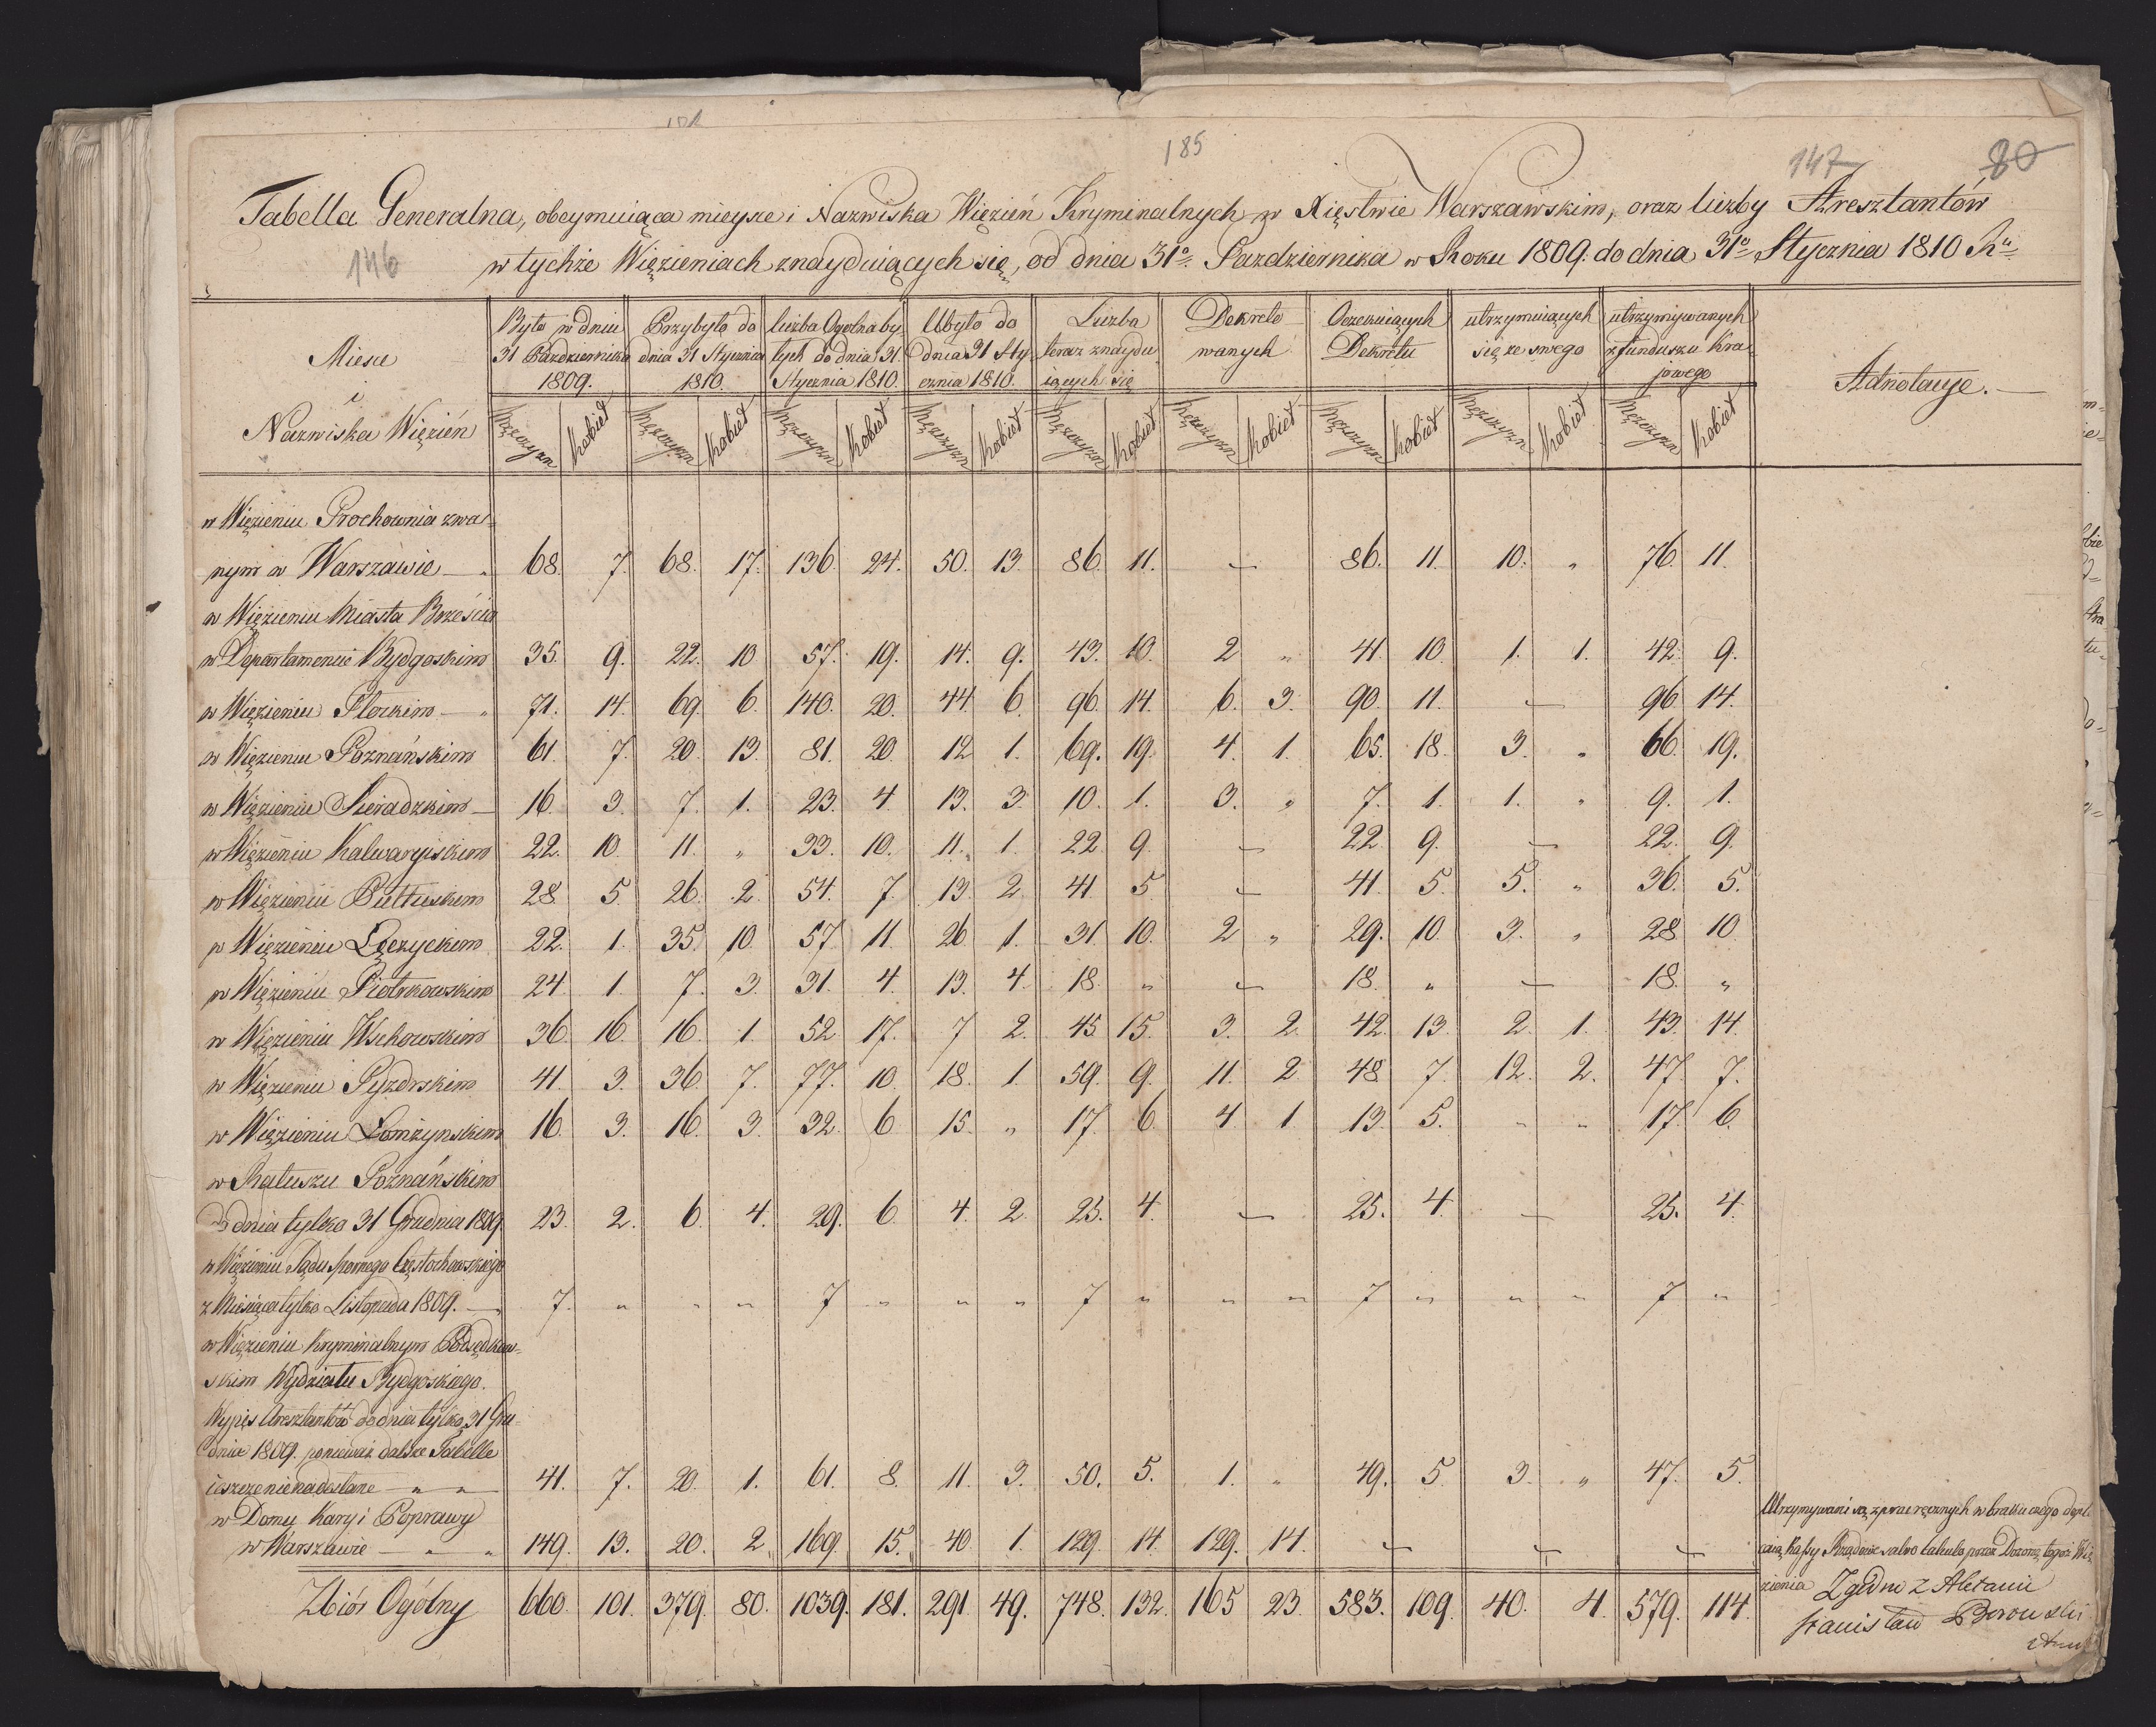 101
185
147 80
Tabella Generalna, obeymuiąca mieysce i Nazwiska Więzień Kryminalnych w Xięstwie Warszawskim, oraz liczby Aresztantów
146
w tychże Więzieniach znayduiących się, od dnia 31º Pazdziernika w Roku 1809. do dnia 31º Stycznia 1810 Rº
Miesca i Nazwiska Więzień | Było w dniu 31 Pazdziernika 1809. | Przybyło do dnia 31 Stycznia 1810. | liczba Ogolna bytych do dnia 31. Stycznia 1810. | Ubyło do dnia 31 Stycznia 1810. | Liczba teraz znayduiących się | Dekretowanych | Oczekuiących Dekretu | utrzymuiących się ze swego | utrzymywanych z funduszu Kraiowego | Adnotacye.
Męzczyzn Kobiet Męzczyzn Kobiet Męzczyzn Kobiet Męzczyzn Kobiet Męzczyzn Kobiet Męzczyzn Kobiet Męzczyzn Kobiet Męzczyzn Kobiet Męzczyzn Kobiet
w Więzieniu Prochownia zwa-
nym w Warszawie — 68. 7. 68. 17. 136. 24. 50. 13. 86. 11. — 86. 11. 10. " 76. 11.
w Więzieniu Miasta Brześcia
w Departamencie Bydgoskim 35. 9. 22. 10 57. 19. 14. 9. 43. 10. 2 " 41. 10. 1. 1. 42. 9.
w Więzieniu Płockim — " 71. 14. 69. 6. 140. 20. 44. 6. 96. 14. 6. 3. 90. 11. — 96. 14.
w Więzieniu Poznańskim 61. 7. 20. 13. 81. 20. 12. 1. 69. 19. 4. 1. 65. 18. 3. " 66. 19.
w Więzieniu Sieradzkim — 16. 3. 7. 1. 23. 4. 13. 3. 10. 1. 3. " 7. 1. 1. " 9. 1.
w Więzieniu Kalwaryiskim 22. 10. 11. " 33. 10. 11. 1. 22. 9. — 22. 9. — 22. 9.
w Więzieniu Pułtuskim 28. 5. 26. 2. 54. 7. 13. 2. 41. 5 — 41. 5. 5. " 36. 5.
w Więzieniu Łęczyckim 22. 1. 35. 10. 57 11. 26. 1. 31. 10. 2 " 29. 10. 3. " 28 10.
w Więzieniu Piotrkowskim 24. 1. 7. 3. 31. 4. 13. 4. 18. " — 18. " — 18. "
w Więzieniu Wschowskim 36. 16. 16. 1. 52. 17. 7 2. 45 15. 3. 2. 42. 13. 2. 1. 43. 14.
w Więzieniu Pyzdrskim 41. 3. 36. 7. 77. 10. 18. 1. 59. 9. 11. 2 48. 7. 12. 2. 47. 7.
w Więzieniu Łomżynskim 16. 3. 16. 3. 32. 6. 15. " 17. 6. 4. 1. 13. 5. " " 17. 6.
w Ratuszu Poznańskim
do dnia tylko 31 Grudnia 1809. 23. 2. 6. 4. 29. 6. 4. 2. 25. 4. — 25. 4. — 25. 4.
w Więzieniu Sądu Spornego Częstochowskiego
z Miesiąca tylko Listopada 1809. — 7. " " " 7 " " " 7 " " " 7 " " " 7 "
w Więzieniu Kryminalnym Podsędkow-
skim Wydziału Bydgoskiego.
Wypis Aresztantów do dnia tylko 31 Gru-
dnia 1809. poniewaz dalsze Tabelle
ieszcze nie nadesłane — " " 41. 7. 20. 1. 61. 8. 11. 3. 50. 5. 1. " 49. 5. 3. " 47. 5.
w Domu Kary i Poprawy
w Warszawie — " " 149. 13. 20. 2. 169. 15. 40. 1. 129. 14. 129. 14. — — —
Utrzymywani są z prac ręcznych w braku czego
Kassy Rządowe salvo calculo przez Dozorcę tegoż Wię
zienia
Zbiór Ogólny 660. 101. 379. 80. 1039. 181. 291. 49. 748. 132. 165 23. 583. 109. 40. 4. 579. 114.
Zgodno z Aktami
Stanisław Borowski